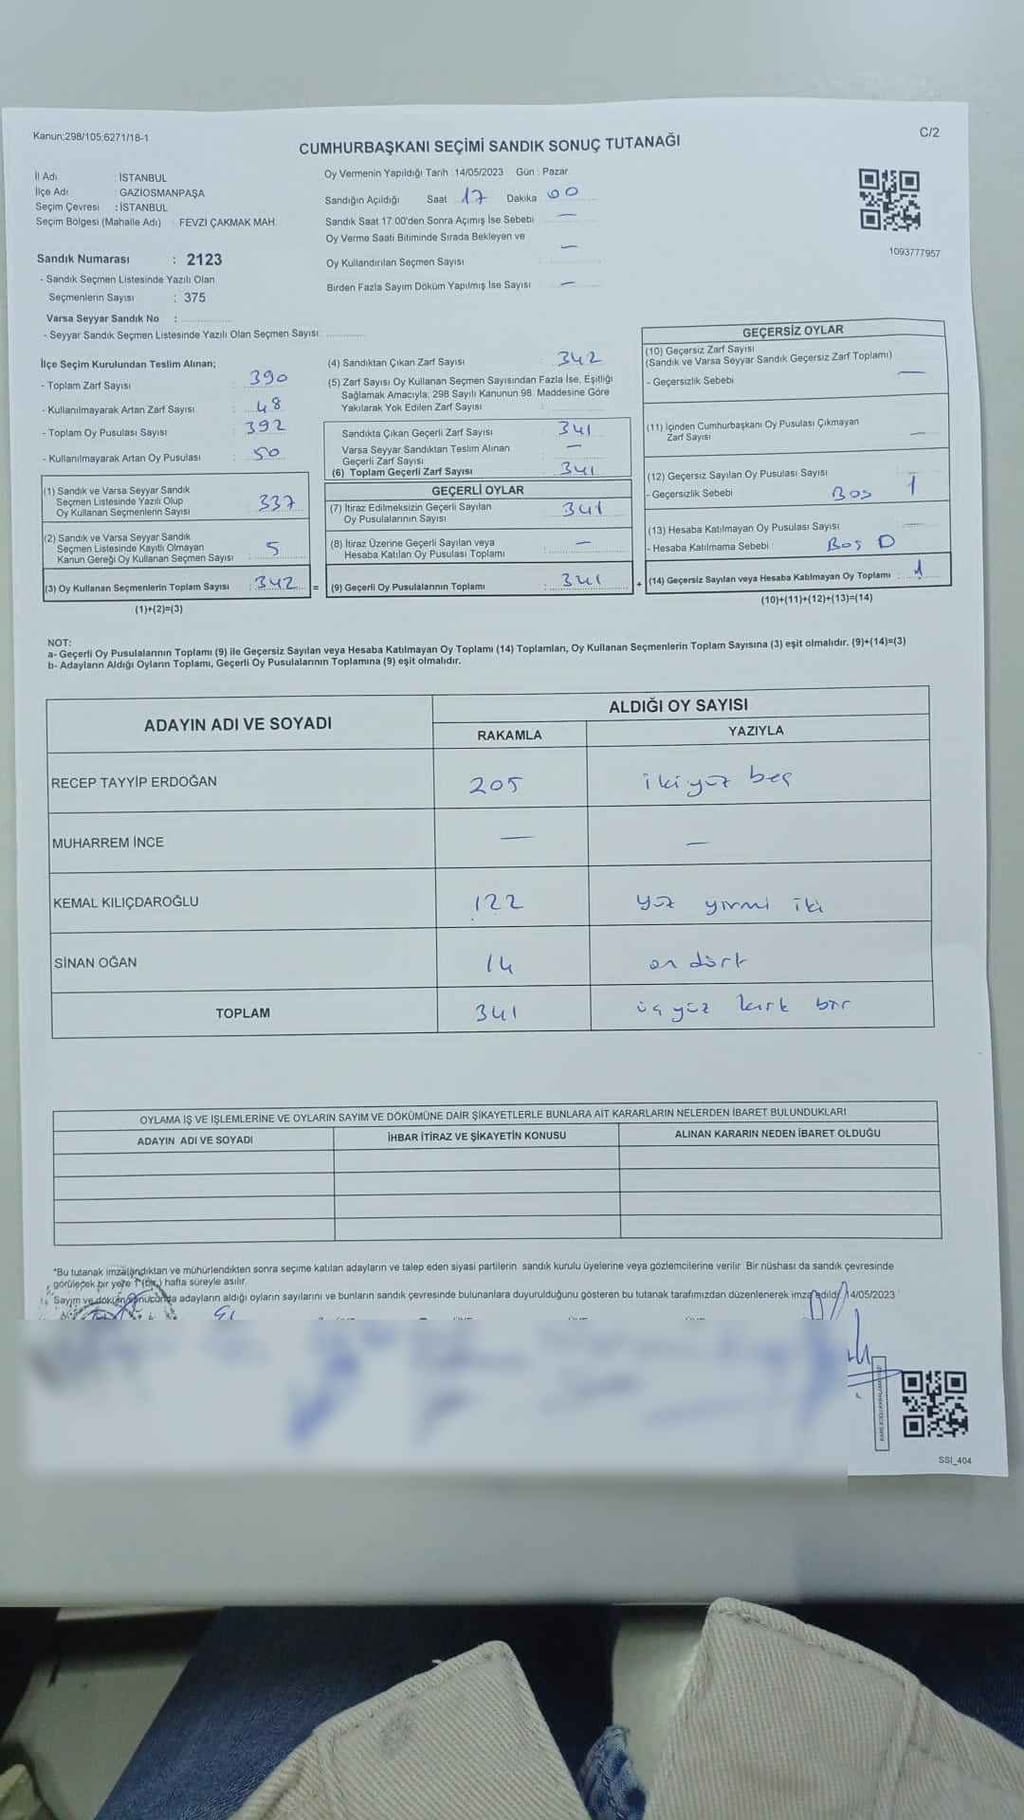 Kanun:298/105:6271/18-1
C/2
CUMHURBAŞKANI SEÇİMİ SANDIK SONUÇ TUTANAĞI
İl Adı : İSTANBUL
İlçe Adı : GAZİOSMANPAŞA
Seçim Çevresi : İSTANBUL
Seçim Bölgesi (Mahalle Adı) : FEVZİ ÇAKMAK MAH.
Sandık Numarası : 2123
- Sandık Seçmen Listesinde Yazılı Olan
Seçmenlerin Sayısı : 375
Varsa Seyyar Sandık No :
- Seyyar Sandık Seçmen Listesinde Yazılı Olan Seçmen Sayısı
Oy Vermenin Yapıldığı Tarih : 14/05/2023 Gün : Pazar
Sandığın Açıldığı Saat 17 Dakika 00
Sandık Saat 17.00'den Sonra Açımış İse Sebebi —
Oy Verme Saati Bitiminde Sırada Bekleyen ve
Oy Kullandırılan Seçmen Sayısı —
Birden Fazla Sayım Döküm Yapılmış İse Sayısı —
1093777957
İlçe Seçim Kurulundan Teslim Alınan;
- Toplam Zarf Sayısı : 390
- Kullanılmayarak Artan Zarf Sayısı : 48
- Toplam Oy Pusulası Sayısı : 392
- Kullanılmayarak Artan Oy Pusulası : 50
(1) Sandık ve Varsa Seyyar Sandık
Seçmen Listesinde Yazılı Olup
Oy Kullanan Seçmenlerin Sayısı : 337
(2) Sandık ve Varsa Seyyar Sandık
Seçmen Listesinde Kayıtlı Olmayan
Kanun Gereği Oy Kullanan Seçmen Sayısı : 5
(3) Oy Kullanan Seçmenlerin Toplam Sayısı : 342 =
(1)+(2)=(3)
(4) Sandıktan Çıkan Zarf Sayısı : 342
(5) Zarf Sayısı Oy Kullanan Seçmen Sayısından Fazla İse, Eşitliği
Sağlamak Amacıyla, 298 Sayılı Kanunun 98. Maddesine Göre
Yakılarak Yok Edilen Zarf Sayısı :
Sandıkta Çıkan Geçerli Zarf Sayısı : 341
Varsa Seyyar Sandıktan Teslim Alınan
Geçerli Zarf Sayısı : —
(6) Toplam Geçerli Zarf Sayısı : 341
GEÇERLİ OYLAR
(7) İtiraz Edilmeksizin Geçerli Sayılan
Oy Pusulalarının Sayısı : 341
(8) İtiraz Üzerine Geçerli Sayılan veya
Hesaba Katılan Oy Pusulası Toplamı : —
(9) Geçerli Oy Pusulalarının Toplamı : 341 +
GEÇERSİZ OYLAR
(10) Geçersiz Zarf Sayısı
(Sandık ve Varsa Seyyar Sandık Geçersiz Zarf Toplamı)
- Geçersizlik Sebebi : —
(11) İçinden Cumhurbaşkanı Oy Pusulası Çıkmayan
Zarf Sayısı —
(12) Geçersiz Sayılan Oy Pusulası Sayısı : 1
- Geçersizlik Sebebi : Boş
(13) Hesaba Katılmayan Oy Pusulası Sayısı :
- Hesaba Katılmama Sebebi : Boş D
(14) Geçersiz Sayılan veya Hesaba Katılmayan Oy Toplamı : 1
(10)+(11)+(12)+(13)=(14)
NOT:
a- Geçerli Oy Pusulalarının Toplamı (9) ile Geçersiz Sayılan veya Hesaba Katılmayan Oy Toplamı (14) Toplamları, Oy Kullanan Seçmenlerin Toplam Sayısına (3) eşit olmalıdır. (9)+(14)=(3)
b- Adayların Aldığı Oyların Toplamı, Geçerli Oy Pusulalarının Toplamına (9) eşit olmalıdır.
ADAYIN ADI VE SOYADI
ALDIĞI OY SAYISI
RAKAMLA YAZIYLA
RECEP TAYYİP ERDOĞAN 205 ikiyüz beş
MUHARREM İNCE — —
KEMAL KILIÇDAROĞLU 122 yüz yirmi iki
SİNAN OĞAN 14 on dört
TOPLAM 341 üç yüz kırk bir
OYLAMA İŞ VE İŞLEMLERİNE VE OYLARIN SAYIM VE DÖKÜMÜNE DAİR ŞİKAYETLERLE BUNLARA AİT KARARLARIN NELERDEN İBARET BULUNDUKLARI
ADAYIN ADI VE SOYADI İHBAR İTİRAZ VE ŞİKAYETİN KONUSU ALINAN KARARIN NEDEN İBARET OLDUĞU
*Bu tutanak imzalandıktan ve mühürlendikten sonra seçime katılan adayların ve talep eden siyasi partilerin sandık kurulu üyelerine veya gözlemcilerine verilir. Bir nüshası da sandık çevresinde
görülecek bir yere 1 (bir) hafta süreyle asılır.
Sayım ve döküm sonucunda adayların aldığı oyların sayılarını ve bunların sandık çevresinde bulunanlara duyurulduğunu gösteren bu tutanak tarafımızdan düzenlenerek imza edildi. 14/05/2023
SSI_404